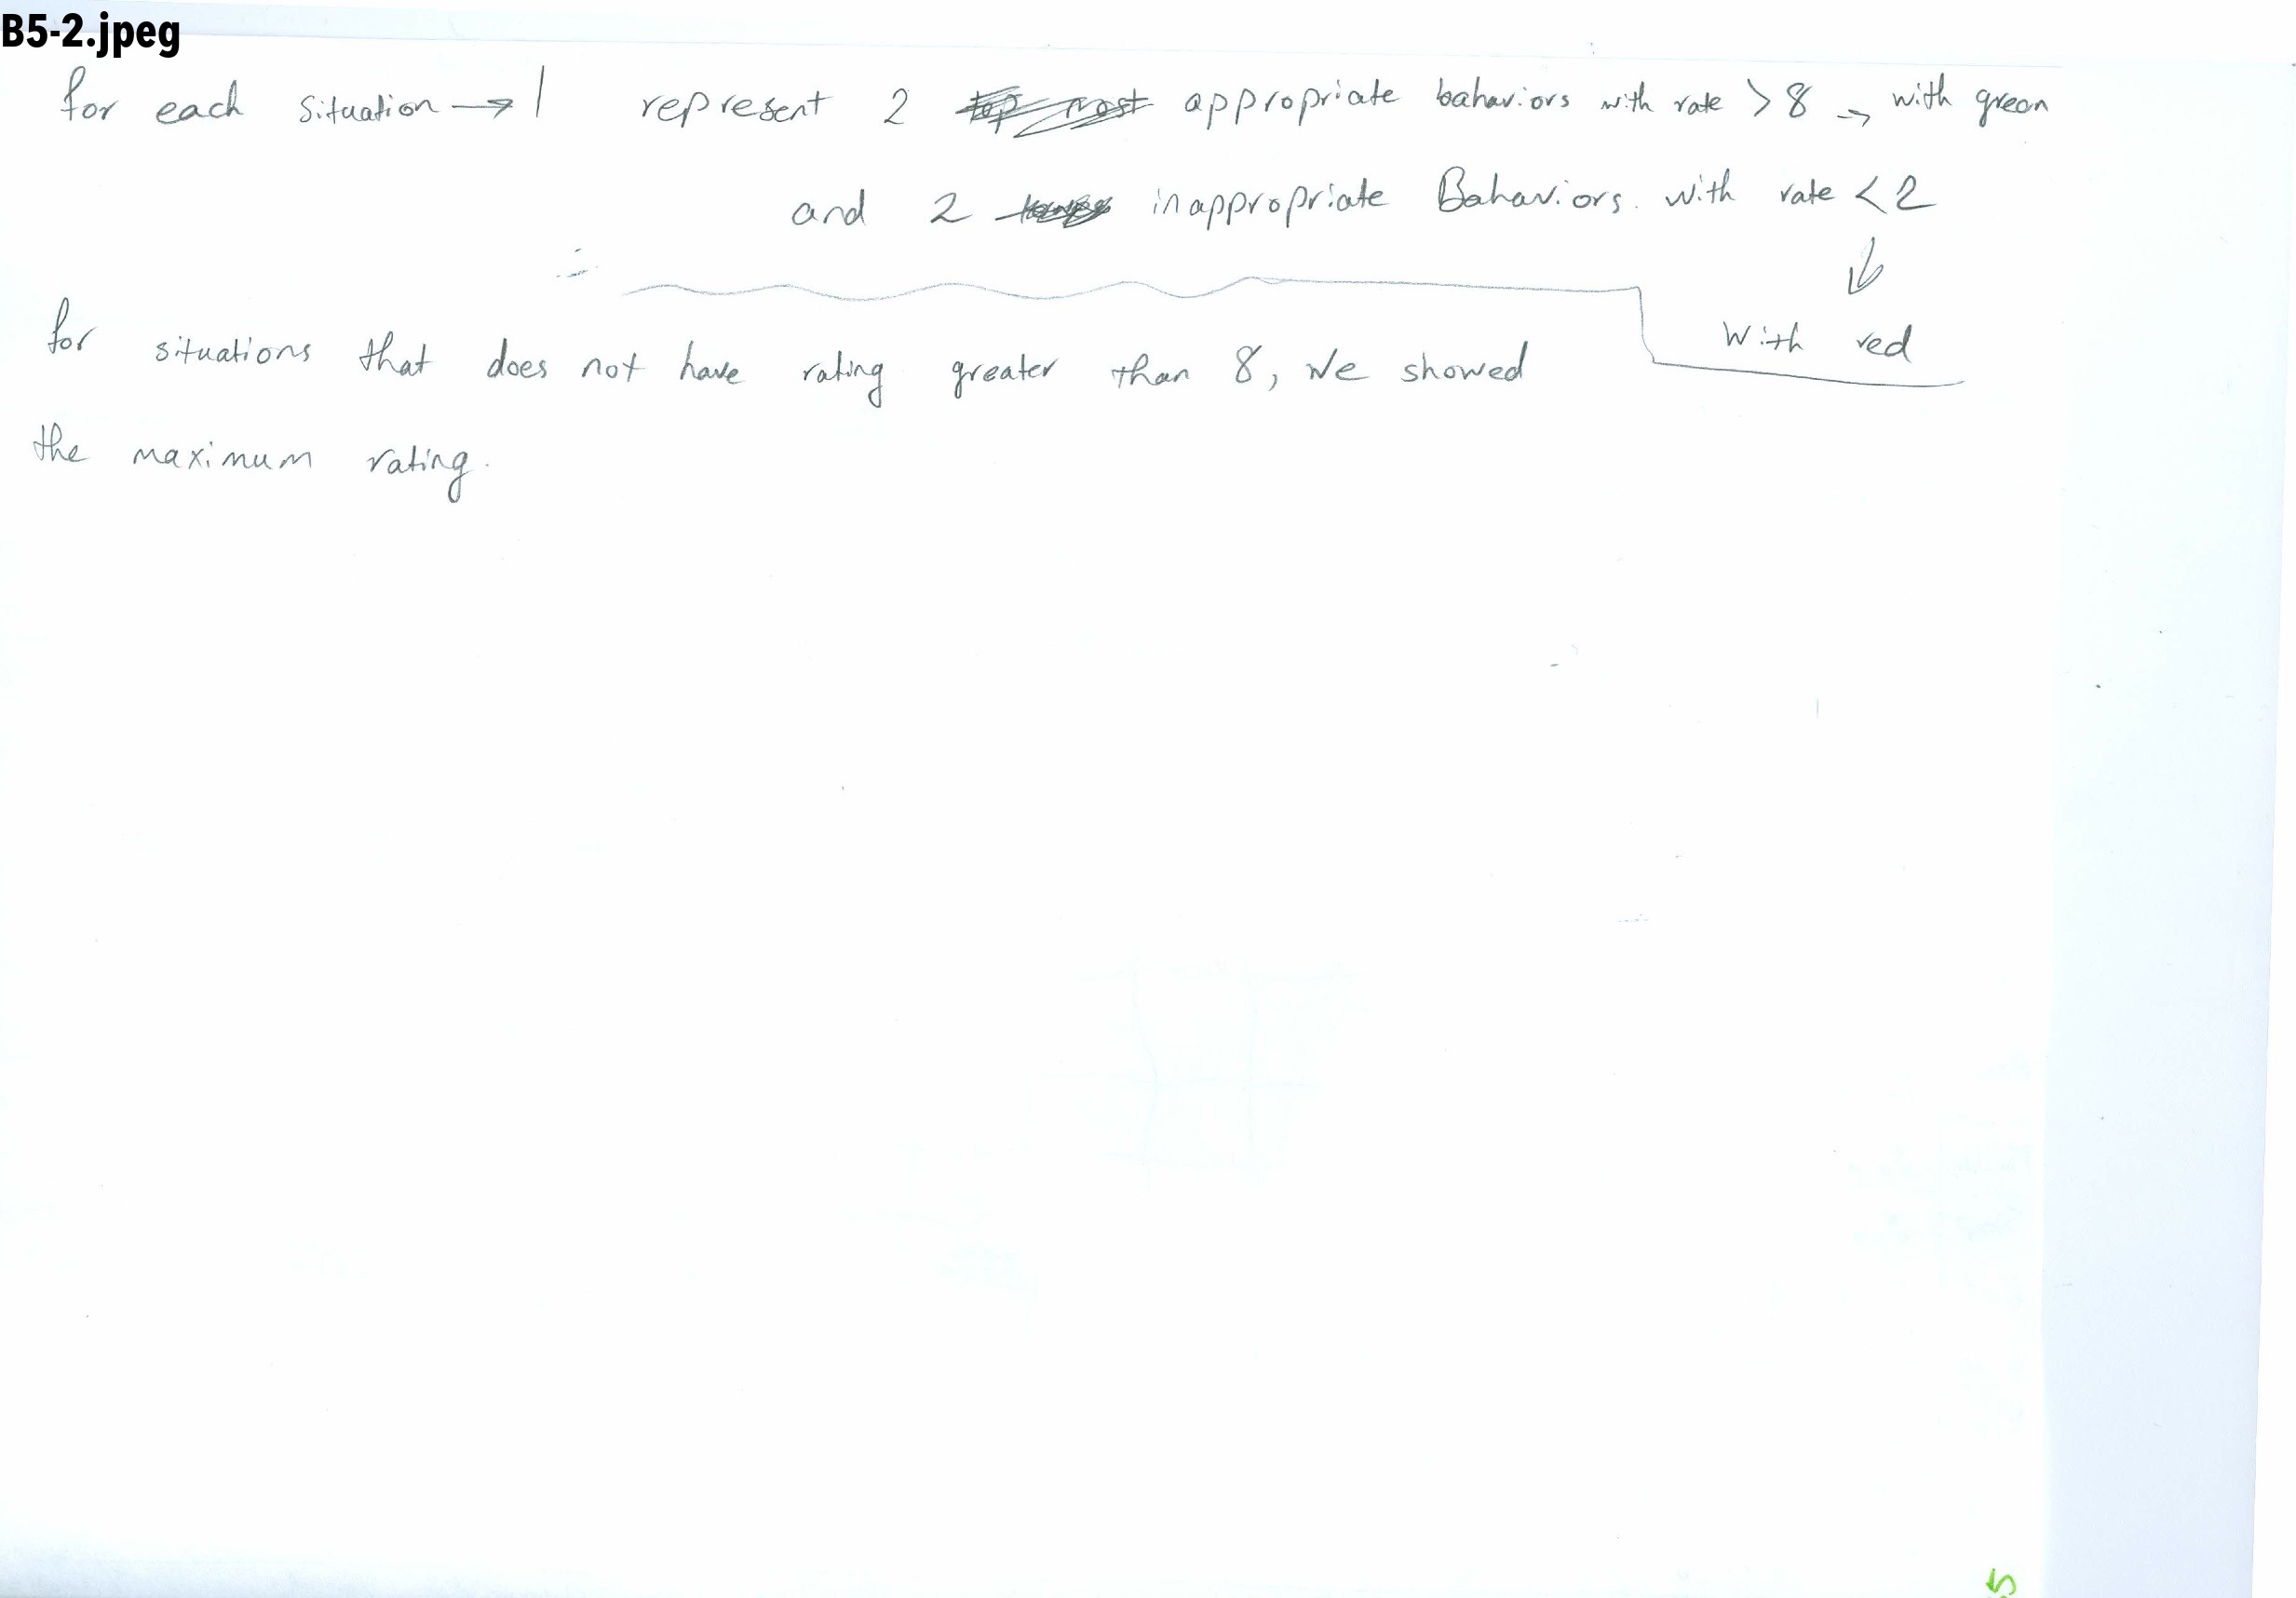 B5-2.jpeg
for each situation → | represent 2 top most appropriate bahaviors with rate > 8 → with green
and 2 inappropriate Bahaviors. with rate < 2
↓
with red
for situations that does not have rating greater than 8, we showed
the maximum rating.
5